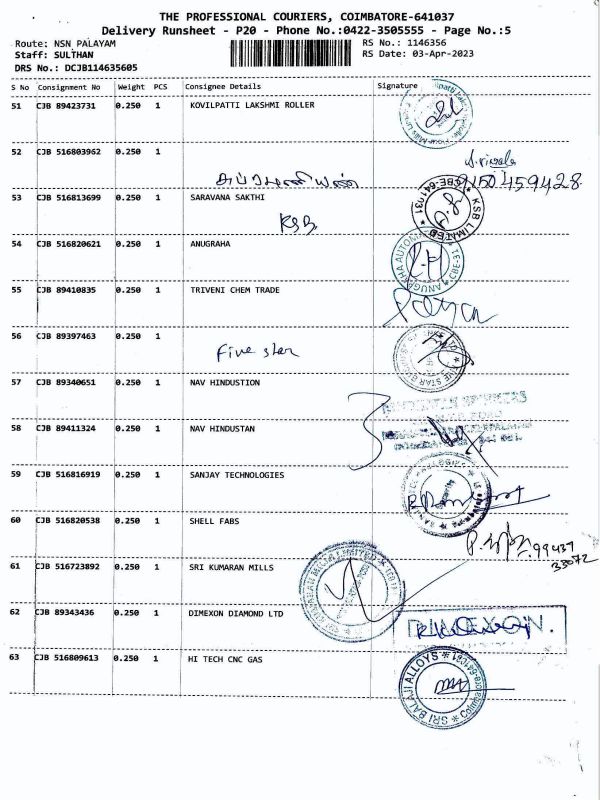 THE PROFESSIONAL COURIERS, COIMBATORE-641037
Delivery Runsheet - P20 - Phone No.:0422-3505555 - Page No.:5
Route: NSN PALAYAM RS No.: 1146356
Staff: SULTHAN RS Date: 03-Apr-2023
DRS No.: DCJB114635605
S No Consignment No Weight PCS Consignee Details Signature
51 CJB 89423731 0.250 1 KOVILPATTI LAKSHMI ROLLER
52 CJB 516803962 0.250 1
9150459428
53 CJB 516813699 0.250 1 SARAVANA SAKTHI
KSB
KSB LIMITED * CBE-641031 *
54 CJB 516820621 0.250 1 ANUGRAHA
55 CJB 89410835 0.250 1 TRIVENI CHEM TRADE
56 CJB 89397463 0.250 1
Five star
57 CJB 89340651 0.250 1 NAV HINDUSTION
58 CJB 89411324 0.250 1 NAV HINDUSTAN
59 CJB 516816919 0.250 1 SANJAY TECHNOLOGIES
60 CJB 516820538 0.250 1 SHELL FABS
99437
33072
61 CJB 516723892 0.250 1 SRI KUMARAN MILLS
62 CJB 89343436 0.250 1 DIMEXON DIAMOND LTD
63 CJB 516809613 0.250 1 HI TECH CNC GAS
SRI BALAJI ALLOYS